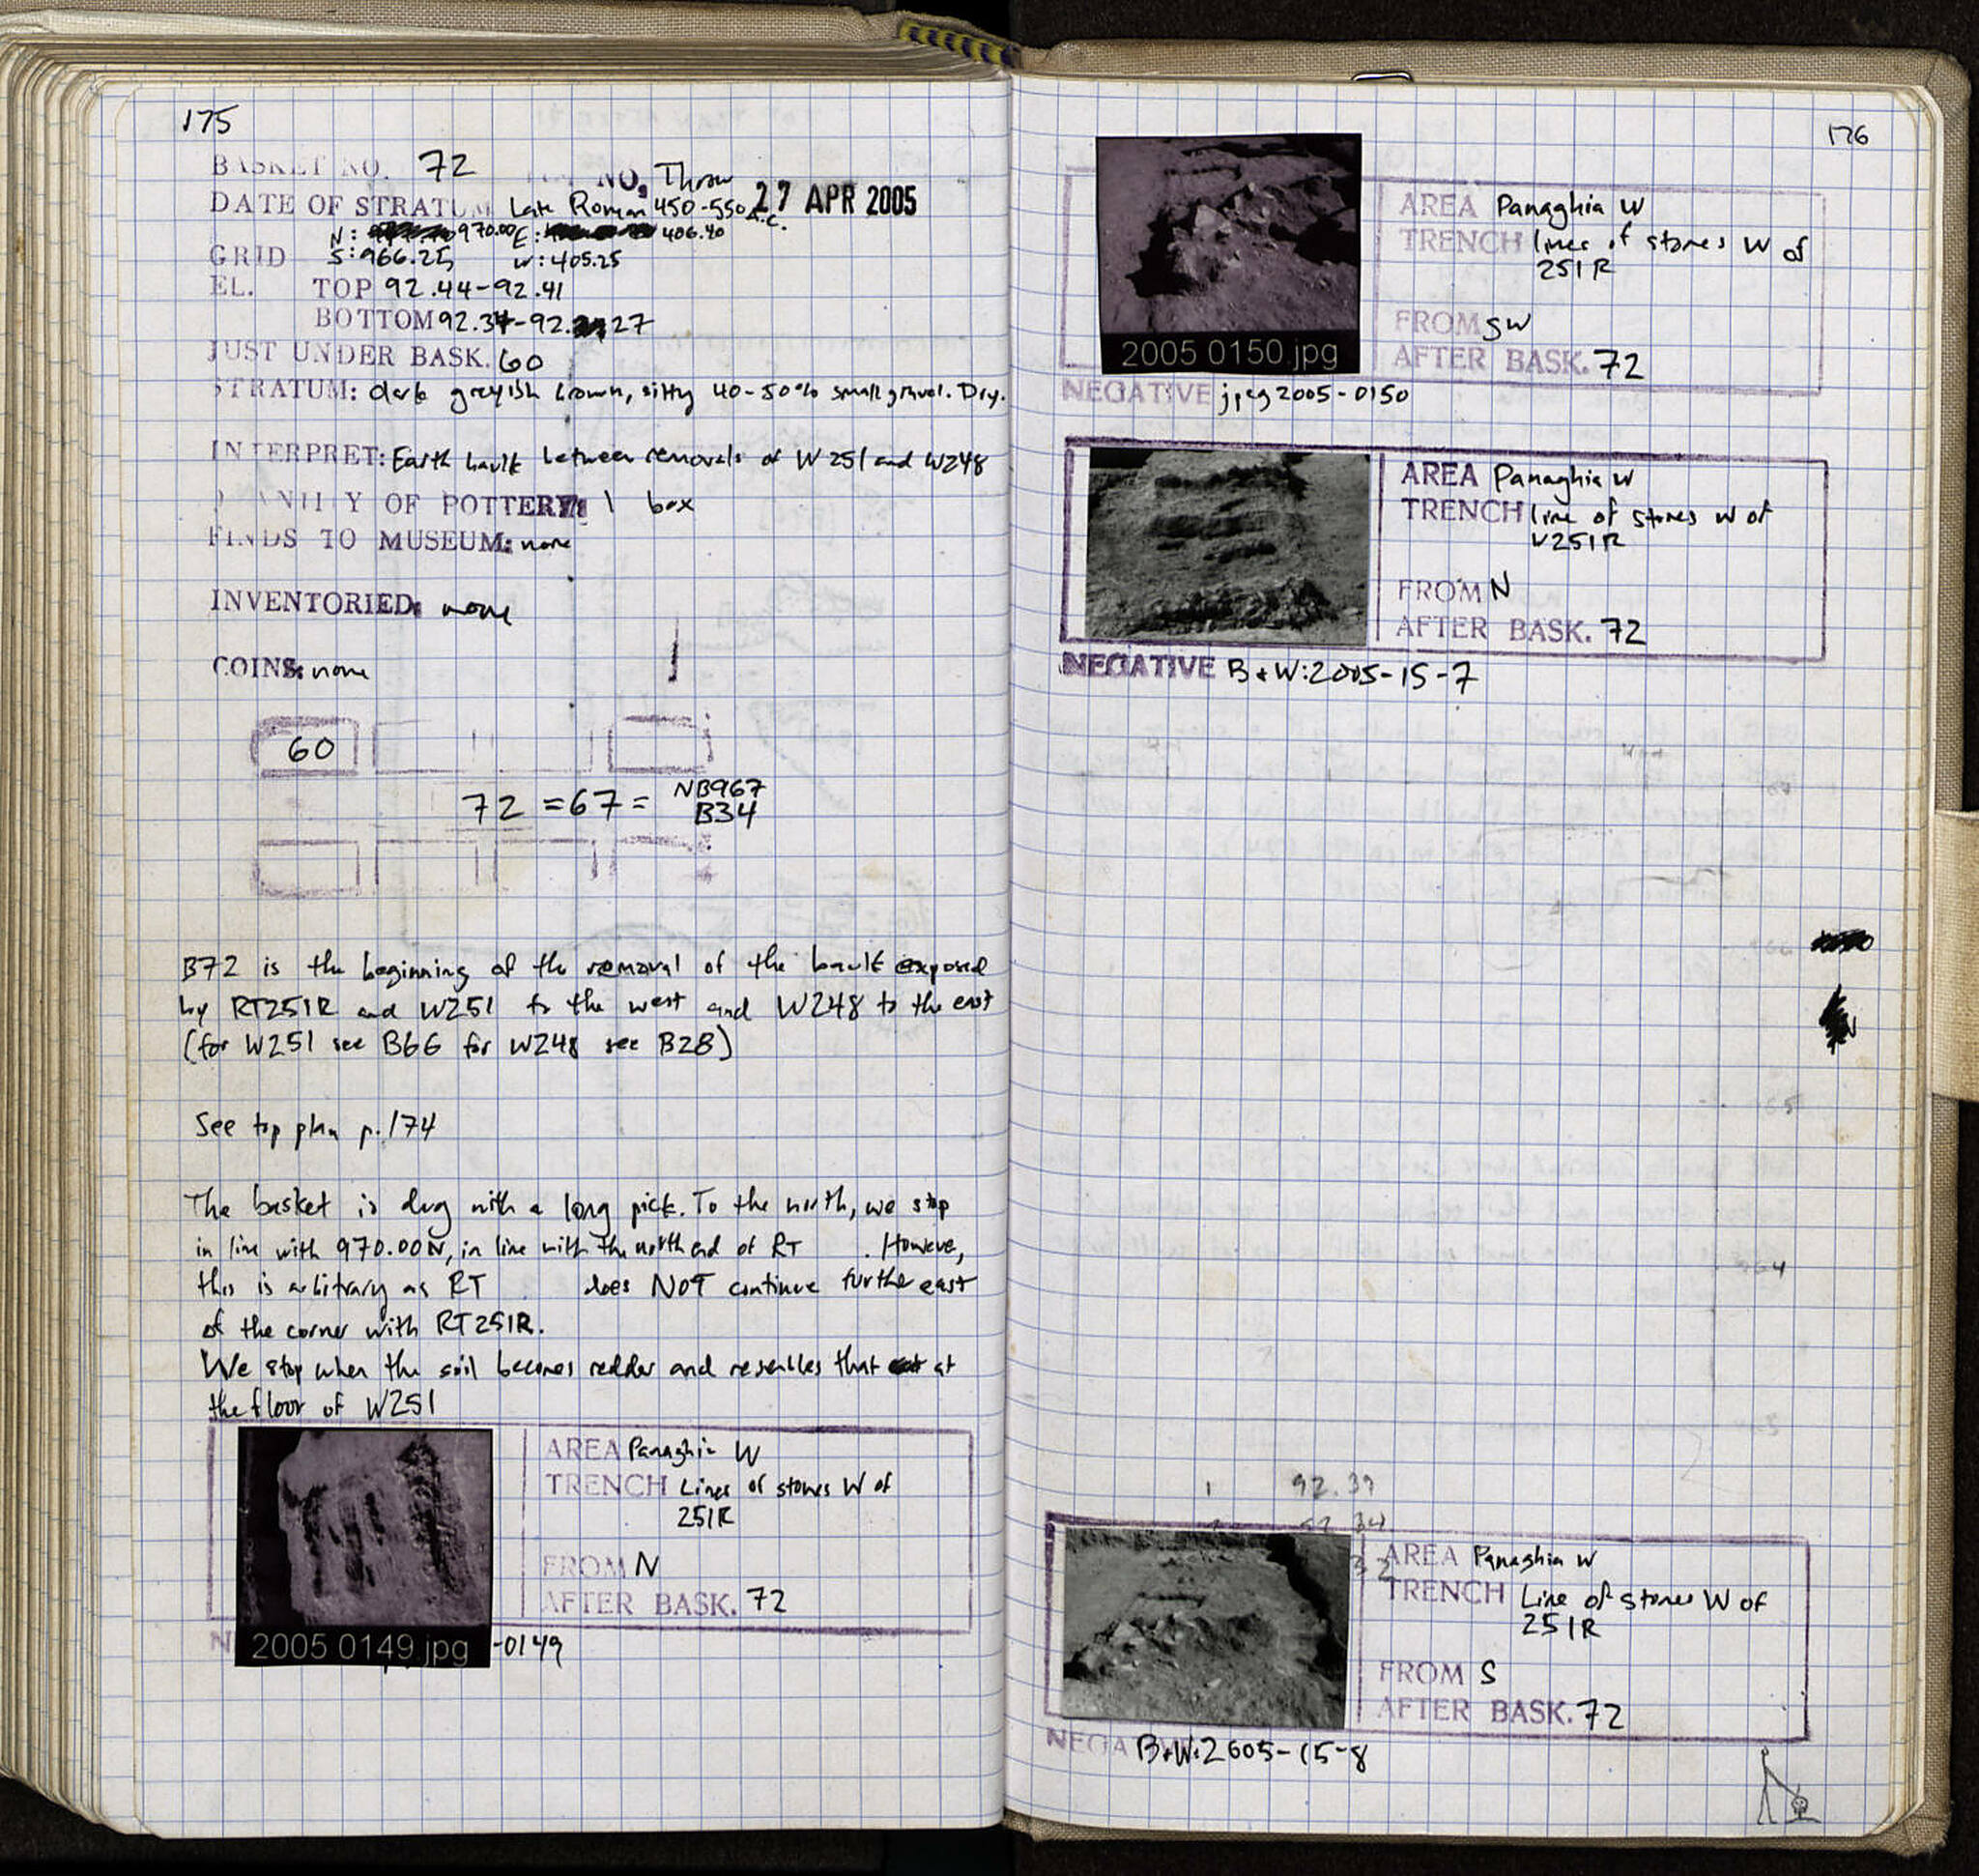 175
BASKET NO. 72 NO. Throw
27 APR 2005
DATE OF STRATUM Late Roman 450-550 A.C.
N: 970.00 E: 406.40
GRID S: 966.25 W: 405.25
EL. TOP 92.44-92.41
BOTTOM 92.34-92.27
JUST UNDER BASK. 60
STRATUM: dark greyish brown, silty 40-50% small gravel. Dry.
INTERPRET: Earth baulk between removals of W251 and W248
QUANTITY OF POTTERY: 1 box
FINDS TO MUSEUM: none
INVENTORIED: none
COINS: none
60
72 = 67 = NB967
B34
B72 is the beginning of the removal of the baulk exposed
by RT251R and W251 to the west and W248 to the east
(for W251 see B66 for W248 see B28)
See top plan p. 174
The basket is dug with a long pick. To the north, we stop
in line with 970.00N, in line with the north end of RT . However,
this is arbitrary as RT does NOT continue further east
of the corner with RT251R.
We stop when the soil becomes redder and resembles that at
the floor of W251
AREA Panaghia W
TRENCH Lines of stones W of
251R
FROM N
AFTER BASK. 72
2005 0149.jpg -0149
176
AREA Panaghia W
TRENCH lines of stones W of
251R
FROM SW
AFTER BASK. 72
2005 0150.jpg
NEGATIVE jpeg 2005-0150
AREA Panaghia W
TRENCH line of stones W of
W251R
FROM N
AFTER BASK. 72
NEGATIVE B+W: 2005-15-7
1 92.37
92.34
32
AREA Panaghia W
TRENCH Line of stones W of
251R
FROM S
AFTER BASK. 72
NEGA B+W: 2005-15-8